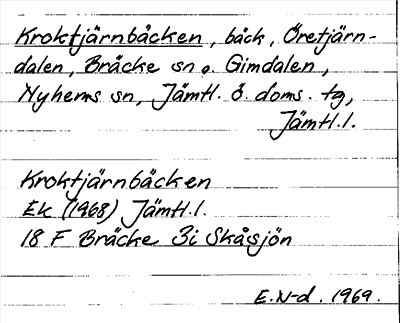 Kroktjärnbäcken, bäck, Öretjärn-
dalen, Bräcke sn o. Gimdalen,
Nyhems sn, Jämtl. ö. doms. tg,
Jämtl. l.
Kroktjärnbäcken
Ek (1968) Jämtl. l.
18 F Bräcke 3i Skåsjön
E. N-d. 1969.